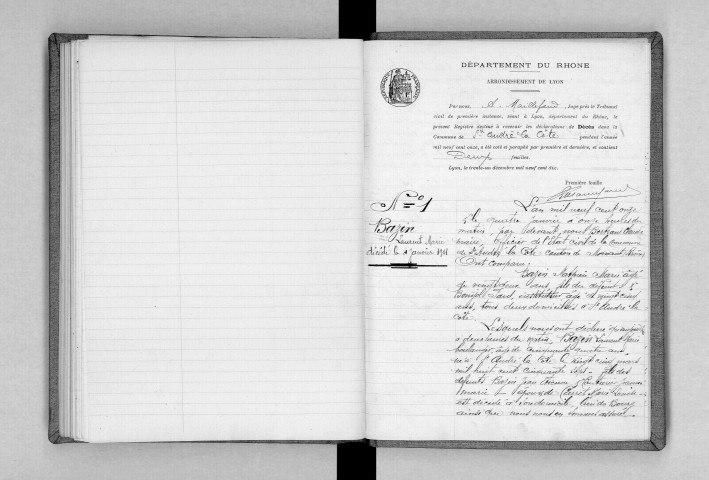 DÉPARTEMENT DU RHONE
ARRONDISSEMENT DE LYON
Par nous, A. Maillefaud, Juge près le Tribunal
civil de première instance, séant à Lyon, département du Rhône, le
présent Registre destiné à recevoir les déclarations de Décès dans la
Commune de St André la Côte pendant l'année
mil neuf cent onze, a été coté et paraphé par première et dernière, et contient
Deux feuillets
Lyon, le trente-un décembre mil neuf cent dix.
Première feuille
N° 1
Bazin
Laurent Marie
décédé le 4 janvier 1911
L'an mil neuf cent onze
le quatre janvier à onze heures du
matin, par devant nous Claude
maire, officier de l'état civil de la commune
de St André la Côte canton de Mornant (Rhône)
Ont comparu:
Bazin Marie âgé
de vingt deux ans, fils du défunt &
Paul, instituteur âgé de vingt cinq
ans, tous deux domiciliés à St André la
Côte.
Lesquels nous ont déclaré
à deux heures du matin, Bazin Laurent Marie
boulanger, âgé de cinquante quatre ans
né à St André la Côte le vingt cinq mars
mil huit cent cinquante sept. fils des
défunts Bazin Jean &
Marie
est décédé à son domicile, lieu du Bourg
ainsi que nous nous en sommes assuré.